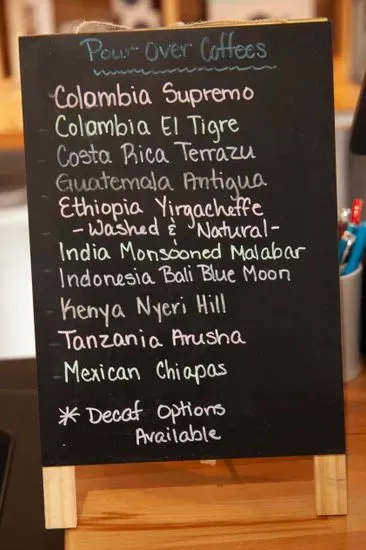 Pour Over Coffees
Colombia Supremo
Colombia El Tigre
Costa Rica Terrazu
Guatemala Antigua
Ethiopia Yirgacheffe
- Washed & Natural -
India Monsooned Malabar
Indonesia Bali Blue Moon
Kenya Nyeri Hill
Tanzania Arusha
Mexican Chiapas
* Decaf Options
Available